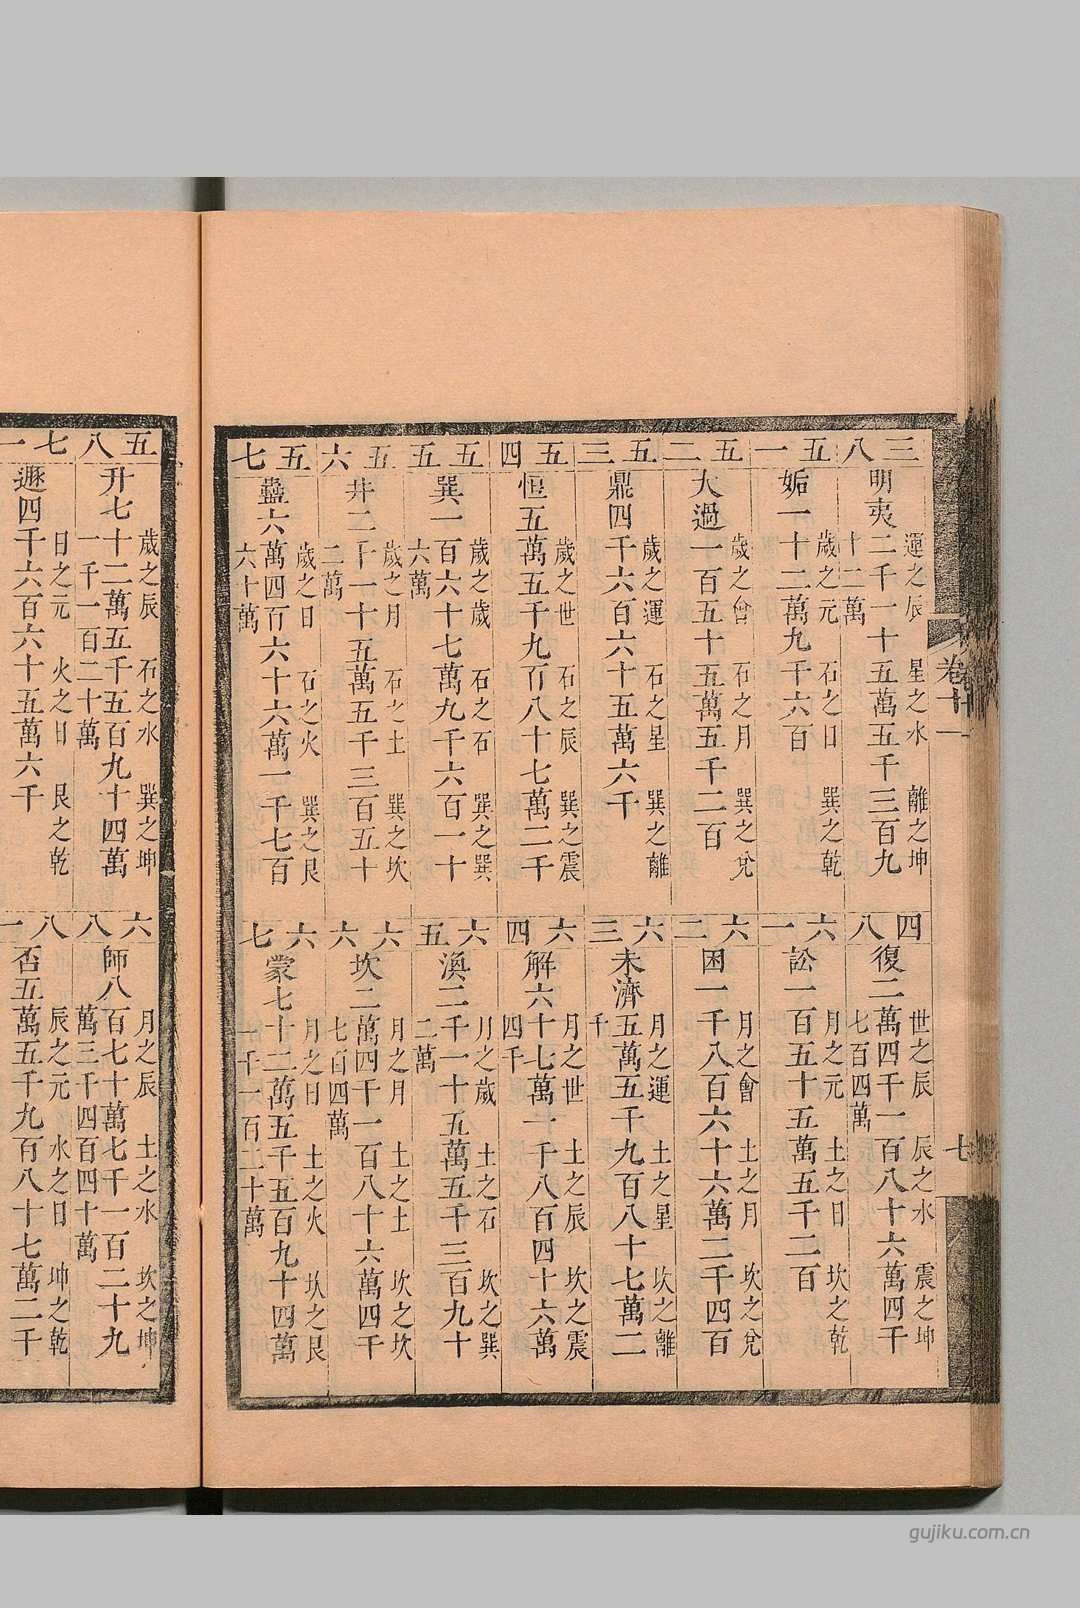 卷十一
七
三八
明夷二千一十五萬五千三百九
十二萬
運之辰 星之水 離之坤
五一
姤一十二萬九千六百
歲之元 石之日 巽之乾
五二
大過一百五十五萬五千二百
歲之會 石之月 巽之兌
五三
鼎四千六百六十五萬六千
歲之運 石之星 巽之離
五四
恒五萬五千九百八十七萬二千
歲之世 石之辰 巽之震
五五
巽一百六十七萬九千六百一十
六萬
歲之歲 石之石 巽之巽
五六
井二千一十五萬五千三百五十
二萬
歲之月 石之土 巽之坎
五七
蠱六萬四百六十六萬一千七百
六十萬
歲之日 石之火 巽之艮
四八
復二萬四千一百八十六萬四千
七百四萬
世之辰 辰之水 震之坤
六一
訟一百五十五萬五千二百
月之元 土之日 坎之乾
六二
困一千八百六十六萬二千四百
月之會 土之月 坎之兌
六三
未濟五萬五千九百八十七萬二
千
月之運 土之星 坎之離
六四
解六十七萬一千八百四十六萬
四千
月之世 土之辰 坎之震
六五
渙二千一十五萬五千三百九十
二萬
月之歲 土之石 坎之巽
六六
坎二萬四千一百八十六萬四千
七百四萬
月之月 土之土 坎之坎
六七
蒙七十二萬五千五百九十四萬
一千一百二十萬
月之日 土之火 坎之艮
五八
升七十二萬五千五百九十四萬
一千一百二十萬
歲之辰 石之水 巽之坤
七一
遯四千六百六十五萬六千
日之元 火之日 艮之乾
六八
師八百七十萬七千一百二十九
萬三千四百四十萬
月之辰 土之水 坎之坤
八一
否五萬五千九百八十七萬二千
辰之元 水之日 坤之乾
gujiku.com.cn